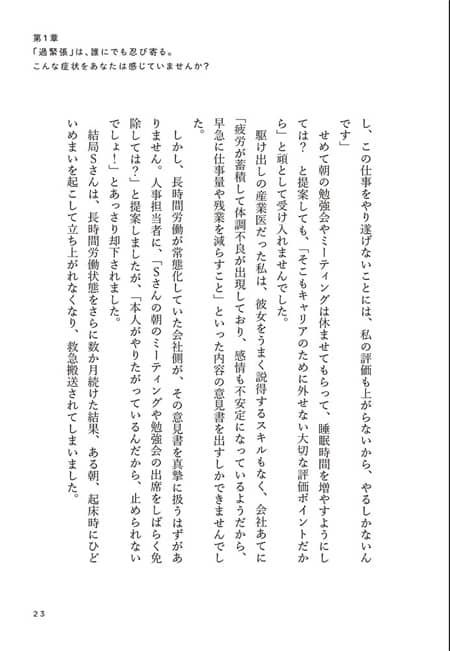 第1章
「過緊張」は、誰にでも忍び寄る。
こんな症状をあなたは感じていませんか？
し、この仕事をやり遂げないことには、私の評価も上がらないから、やるしかないん
です」
せめて朝の勉強会やミーティングは休ませてもらって、睡眠時間を増やすようにし
ては？ と提案しても、「そこもキャリアのために外せない大切な評価ポイントだか
ら」と頑として受け入れませんでした。
駆け出しの産業医だった私は、彼女をうまく説得するスキルもなく、会社あてに
「疲労が蓄積して体調不良が出現しており、感情も不安定になっているようだから、
早急に仕事量や残業を減らすこと」といった内容の意見書を出すしかできませんでし
た。
しかし、長時間労働が常態化していた会社側が、その意見書を真摯に扱うはずがあ
りません。人事担当者に、「Sさんの朝のミーティングや勉強会の出席をしばらく免
除しては？」と提案しましたが、「本人がやりたがっているんだから、止められない
でしょ！」とあっさり却下されました。
結局Sさんは、長時間労働状態をさらに数か月続けた結果、ある朝、起床時にひど
いめまいを起こして立ち上がれなくなり、救急搬送されてしまいました。
23